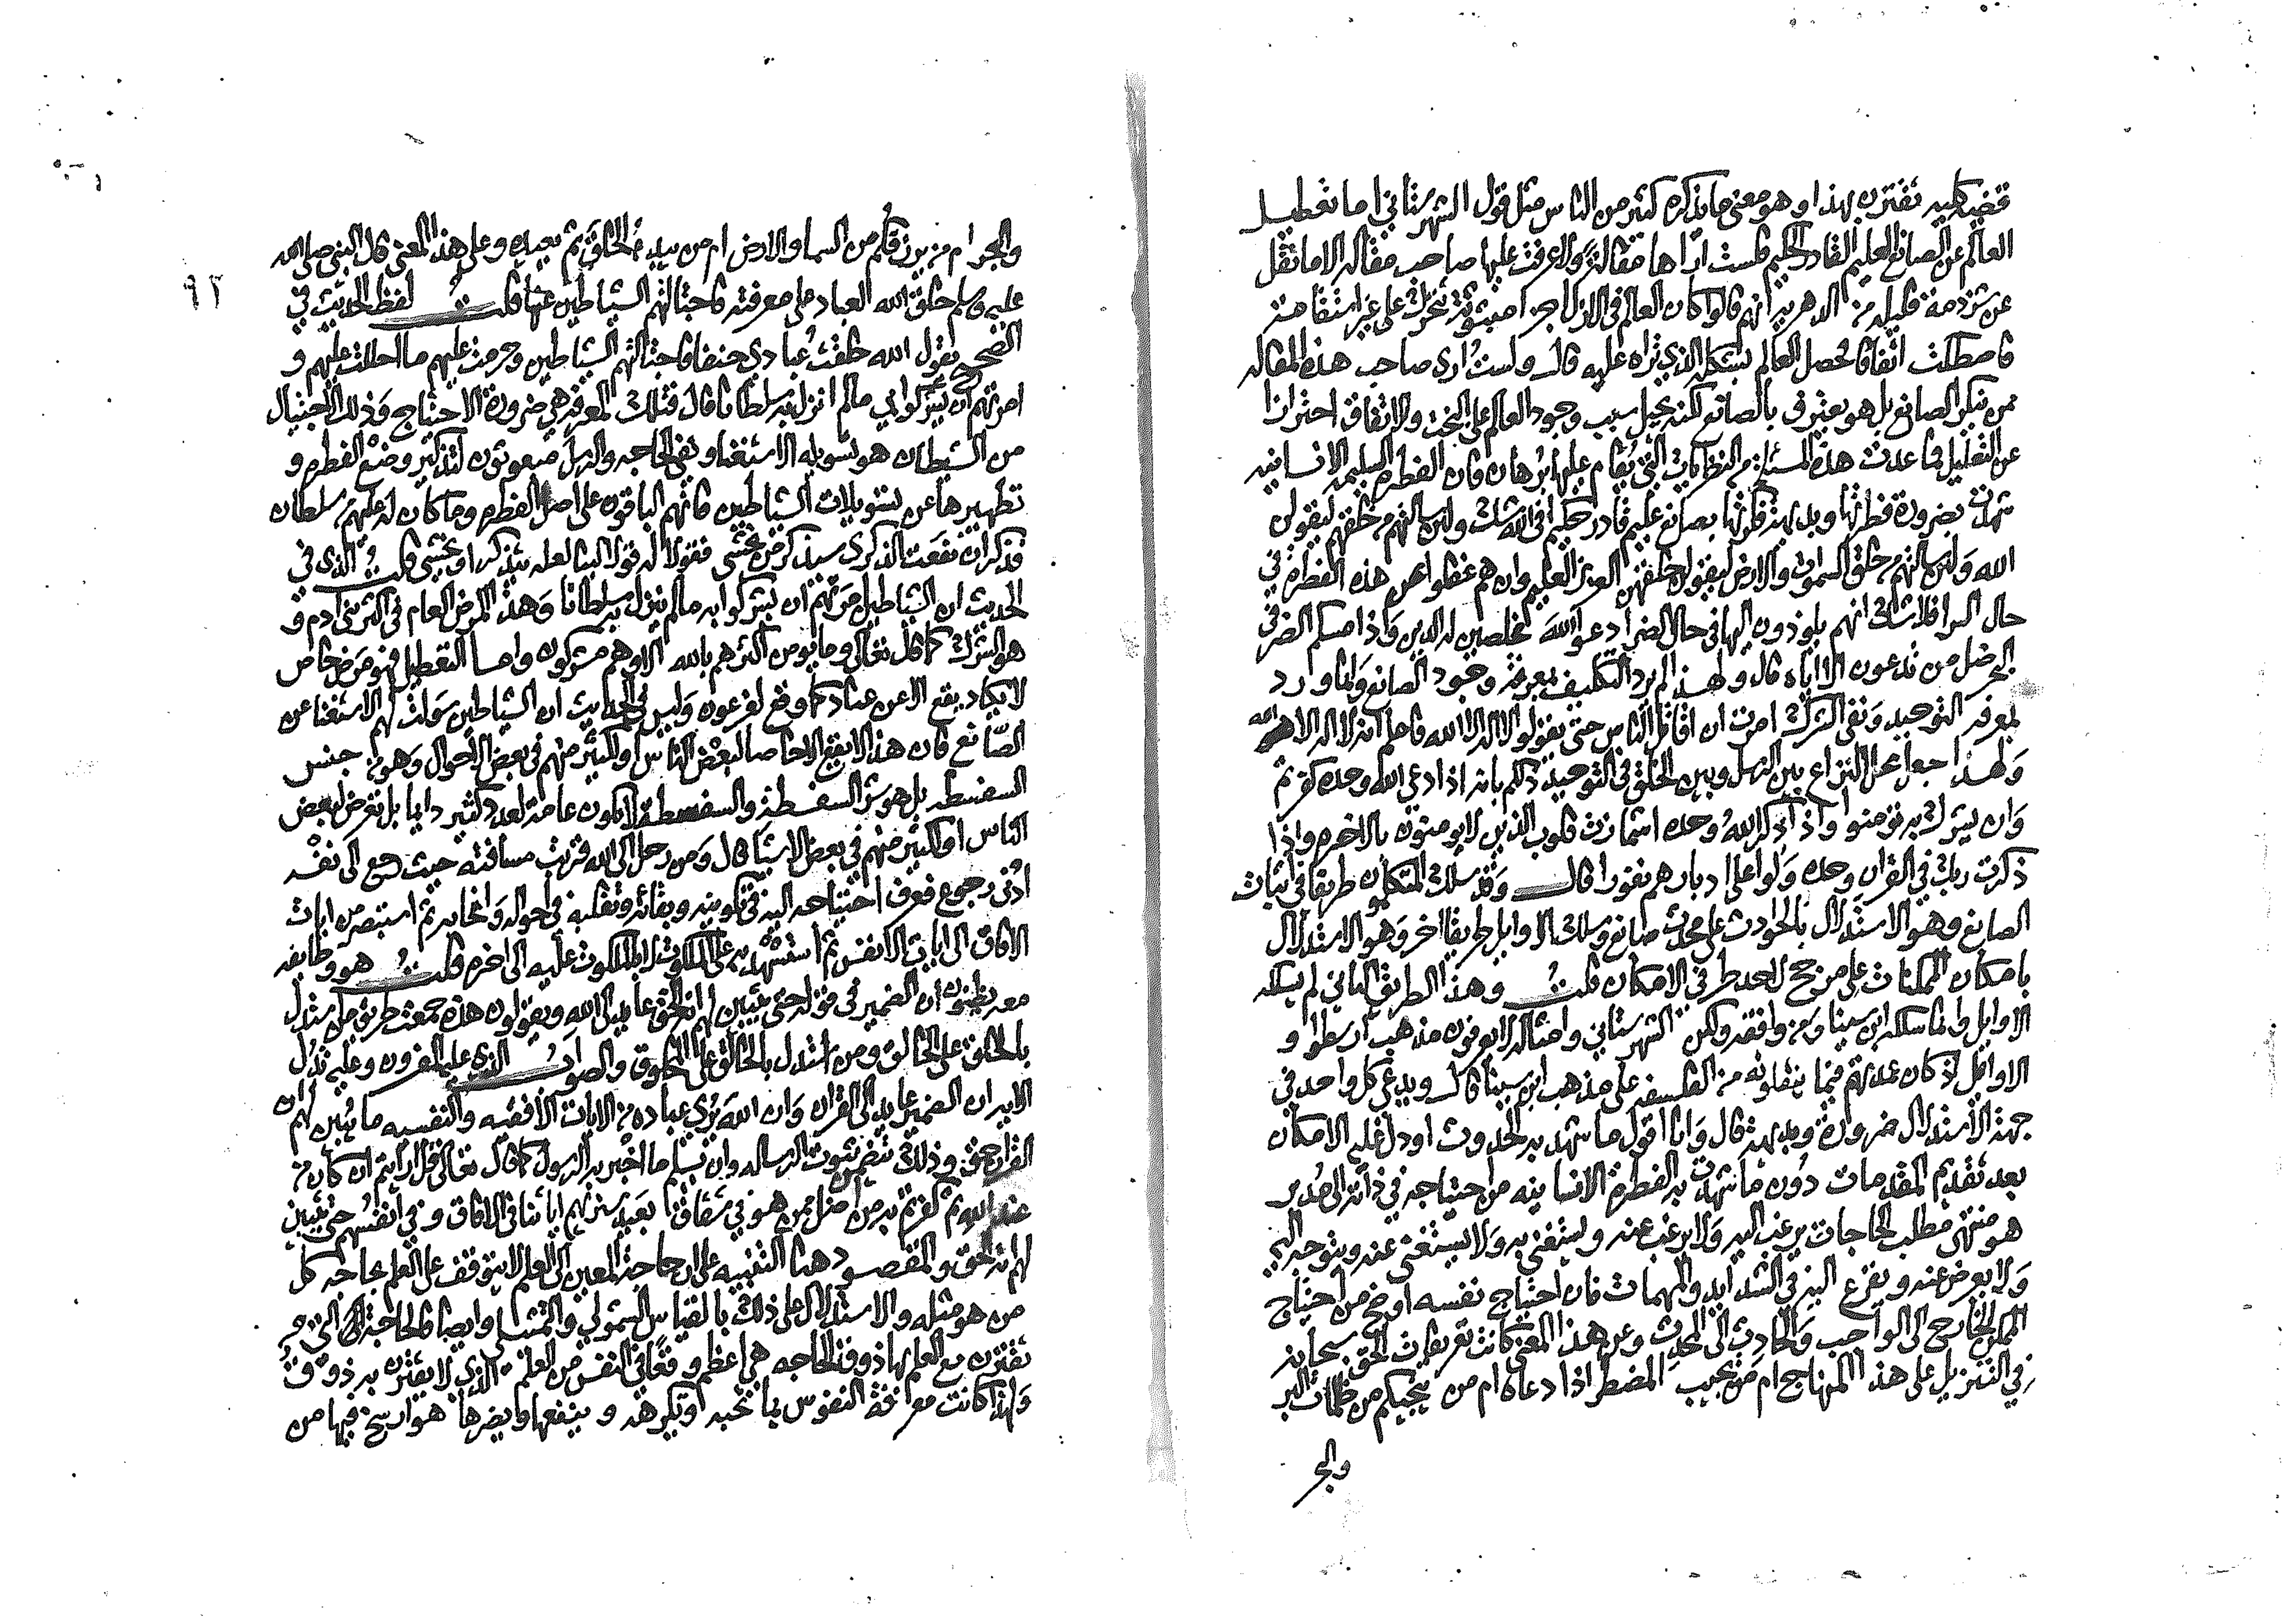 قضيه كليه تقترن بهذا وهو معنى ما يذكره كثير من الناس مثل قول الشهرستاني اما تعطيل
العالم عن الصانع العليم القادر الحكيم فلست اراها مقالة ولا عرفت عليها صاحب مقاله الا ما نقل
عن شرذمة قليله من الدهريه انهم قالوا كان العالم في الازل اجزا مبثوثة تتحرك على غير استقامة
فاصطكت اتفاقا فحصل العالم بشكله الذي تراه عليه قال ولست ارى صاحب هذه المقاله
ممن ينكر الصانع بل هو يعترف بالصانع لكنه يحيل سبب وجود العالم على البخت والاتفاق احترازا
عن التعليل فما عدت هذه المسئلة من النظريات التي يقام عليها برهان فان الفطره السليمه الانسانيه
شهدت بضرورة فطرتها وبديهة فكرتها بصانع عليم قادر حكيم افي الله شك ولين سالتهم من خلقهم ليقولن
الله ولين سالتهم من خلق السموات والارض ليقولن خلقهن العزيز العليم وان هم غفلوا عن هذه الفطره في
حال السرا فلا شك انهم يلوذون اليها في حال الضرا دعوا الله مخلصين له الدين واذا مسكم الضر في
البحر ضل من تدعون الا اياه قال ولهذا لم يرد التكليف بمعرفة وجود الصانع وانما ورد
بمعرفه التوحيد ونفي الشرك امرت ان اقاتل الناس حتى يقولوا لا اله الا الله فاعلم انه لا اله الا الله
ولهذا جعل محل النزاع بين الرسل وبين الخلق في التوحيد ذلكم بانه اذا دعي الله وحده كفرتم
وان يشرك به تومنوا واذا ذكر الله وحده اشمازت قلوب الذين لا يومنون بالاخره واذا
ذكرت ربك في القران وحده ولوا على ادبارهم نفورا قال وقد سلك المتكلمون طريقا في اثبات
الصانع وهو الاستدلال بالحوادث على محدث صانع وسلك الاوايل طريقا اخر وهو الاستدلال
بامكان الممكنات على مرجح لاحد طرفي الامكان قلت وهذا الطريق الثاني لم يسلكه
الاوايل وانما سلكه ابن سينا ومن وافقه ولكن الشهرستاني وامثاله لا يعرفون مذهب ارسطوا و
الاوائل اذ كان عمدتهم فيما ينقلونه من الفلسفه على مذهب ابن سينا قال ويدعي كل واحد في
جهة الاستدلال ضرورة وبديهة قال وانا اقول ما شهد به الحدوث او دل عليه الامكان
بعد تقديم المقدمات دون ما شهدت به الفطرة الانسانيه من احتياجه في ذاته الى مدبر
هو منتهى مطلب الحاجات يرغب اليه ولا يرغب عنه ويستغنى به ولا يستغنى عنه ويتوجه اليه
ولا يعرض عنه ويفزع اليه في الشدايد والمهمات فان احتياج نفسه اوضح من احتياج
الممكن الخارج الى الواجب والحادث الى المحدث وعن هذا المعنى كانت تعريفات الحق سبحانه
في التنزيل على هذا المنهاج ام من يجيب المضطر اذا دعاه ام من ينجيكم من ظلمات البر
والبحر
والبحر ام من يرزقكم من السما والارض ام من يبدء الخلق ثم يعيده وعلى هذا المعنى قال النبي صلى الله
٩٢
عليه وسلم خلق الله العباد على معرفته فاجتالتهم الشياطين عنها قلت لفظ الحديث في
الصحيح يقول الله خلقت عبادي حنفا فاجتالتهم الشياطين وحرمت عليهم ما احللت عليهم و
امرتهم ان يشركوا بي ما لم انزل به سلطانا قال فتلك المعرفه هي ضرورة الاحتياج وذلك الاجتيال
من الشيطان هو تسويله الاستغنا ونفي الحاجه والرسل مبعوثون لتذكير وضع الفطره و
تطهيرها عن تسويلات الشياطين فانهم الباقون على اصل الفطره وما كان له عليهم من سلطان
فذكر ان نفعت الذكرى سيذكر من يخشى فقولا له قولا لينا لعله يتذكر او يخشى قلت الذي في
الحديث ان الشياطين امرتهم ان يشركوا به ما لم ينزل به سلطانا وهذا المرض العام في اكثر بني ادم و
هو الشرك كما قال تعالى وما يومن اكثرهم بالله الا وهم مشركون واما التعطيل فهو مرض خاص
لا يكاد يقع الا عن عناد كما وقع لفرعون وليس في الحديث ان الشياطين سولت لهم الاستغنا عن
الصانع فان هذا لا يقع الا خاصا لبعض الناس او لكثير منهم في بعض الاحوال وهو من جنس
السفسطه بل هو شر السفسطة والسفسطة لا تكون عامة لعدد كثير دايما بل تعرض لبعض
الناس او لكثير منهم في بعض الاشيا قال ومن رحل الى الله قربت مسافته حيث رجع الى نفسه
ادنى رجوع فعرف احتياجه اليه في تكوينه وبقائه وتقلبه في احواله وانحايه ثم استبصر من ايات
الافاق الى ايات الانفس ثم استشهد به على الملكوت لا بالملكوت عليه الى اخره قلت هو وطايفه
معه يظنون ان الضمير في قوله حتى يتبين لهم انه الحق عايد الى الله ويقولون هذه جمعت طريق من استدل
بالخلق على الخالق ومن استدل بالخالق على المخلوق والصواب الذي عليه المفسرون وعليه تدل
الايه ان الضمير عايد الى القران وان الله يري عباده من الايات الافقيه والنفسيه ما يبين لهم ان
القران حق وذلك يتضمن ثبوت الرساله وان يسلم ما اخبر به الرسول كما قال تعالى قل ارايتم ان كان من
عند الله ثم كفرتم به من اضل ممن هو في شقاق بعيد سنريهم اياتنا في الافاق وفي انفسهم حتى يتبين
لهم انه الحق والمقصود هنا التنبيه على ان حاجة المعين الى العلم لا يتوقف على العلم بحاجه كل
من هو مثله والاستدلال على ذلك بالقياس الشمولي والتمثيلي وايضا فالحاجة التي
تقترن مع العلم بها ذوق الحاجه هي اعظم وقعا في النفس من العلم الذي لا يقترن به ذوق
ولهذا كانت معرفة النفوس بما تحبه او تكرهه وينفعها ويضرها هو ارسخ فيها من